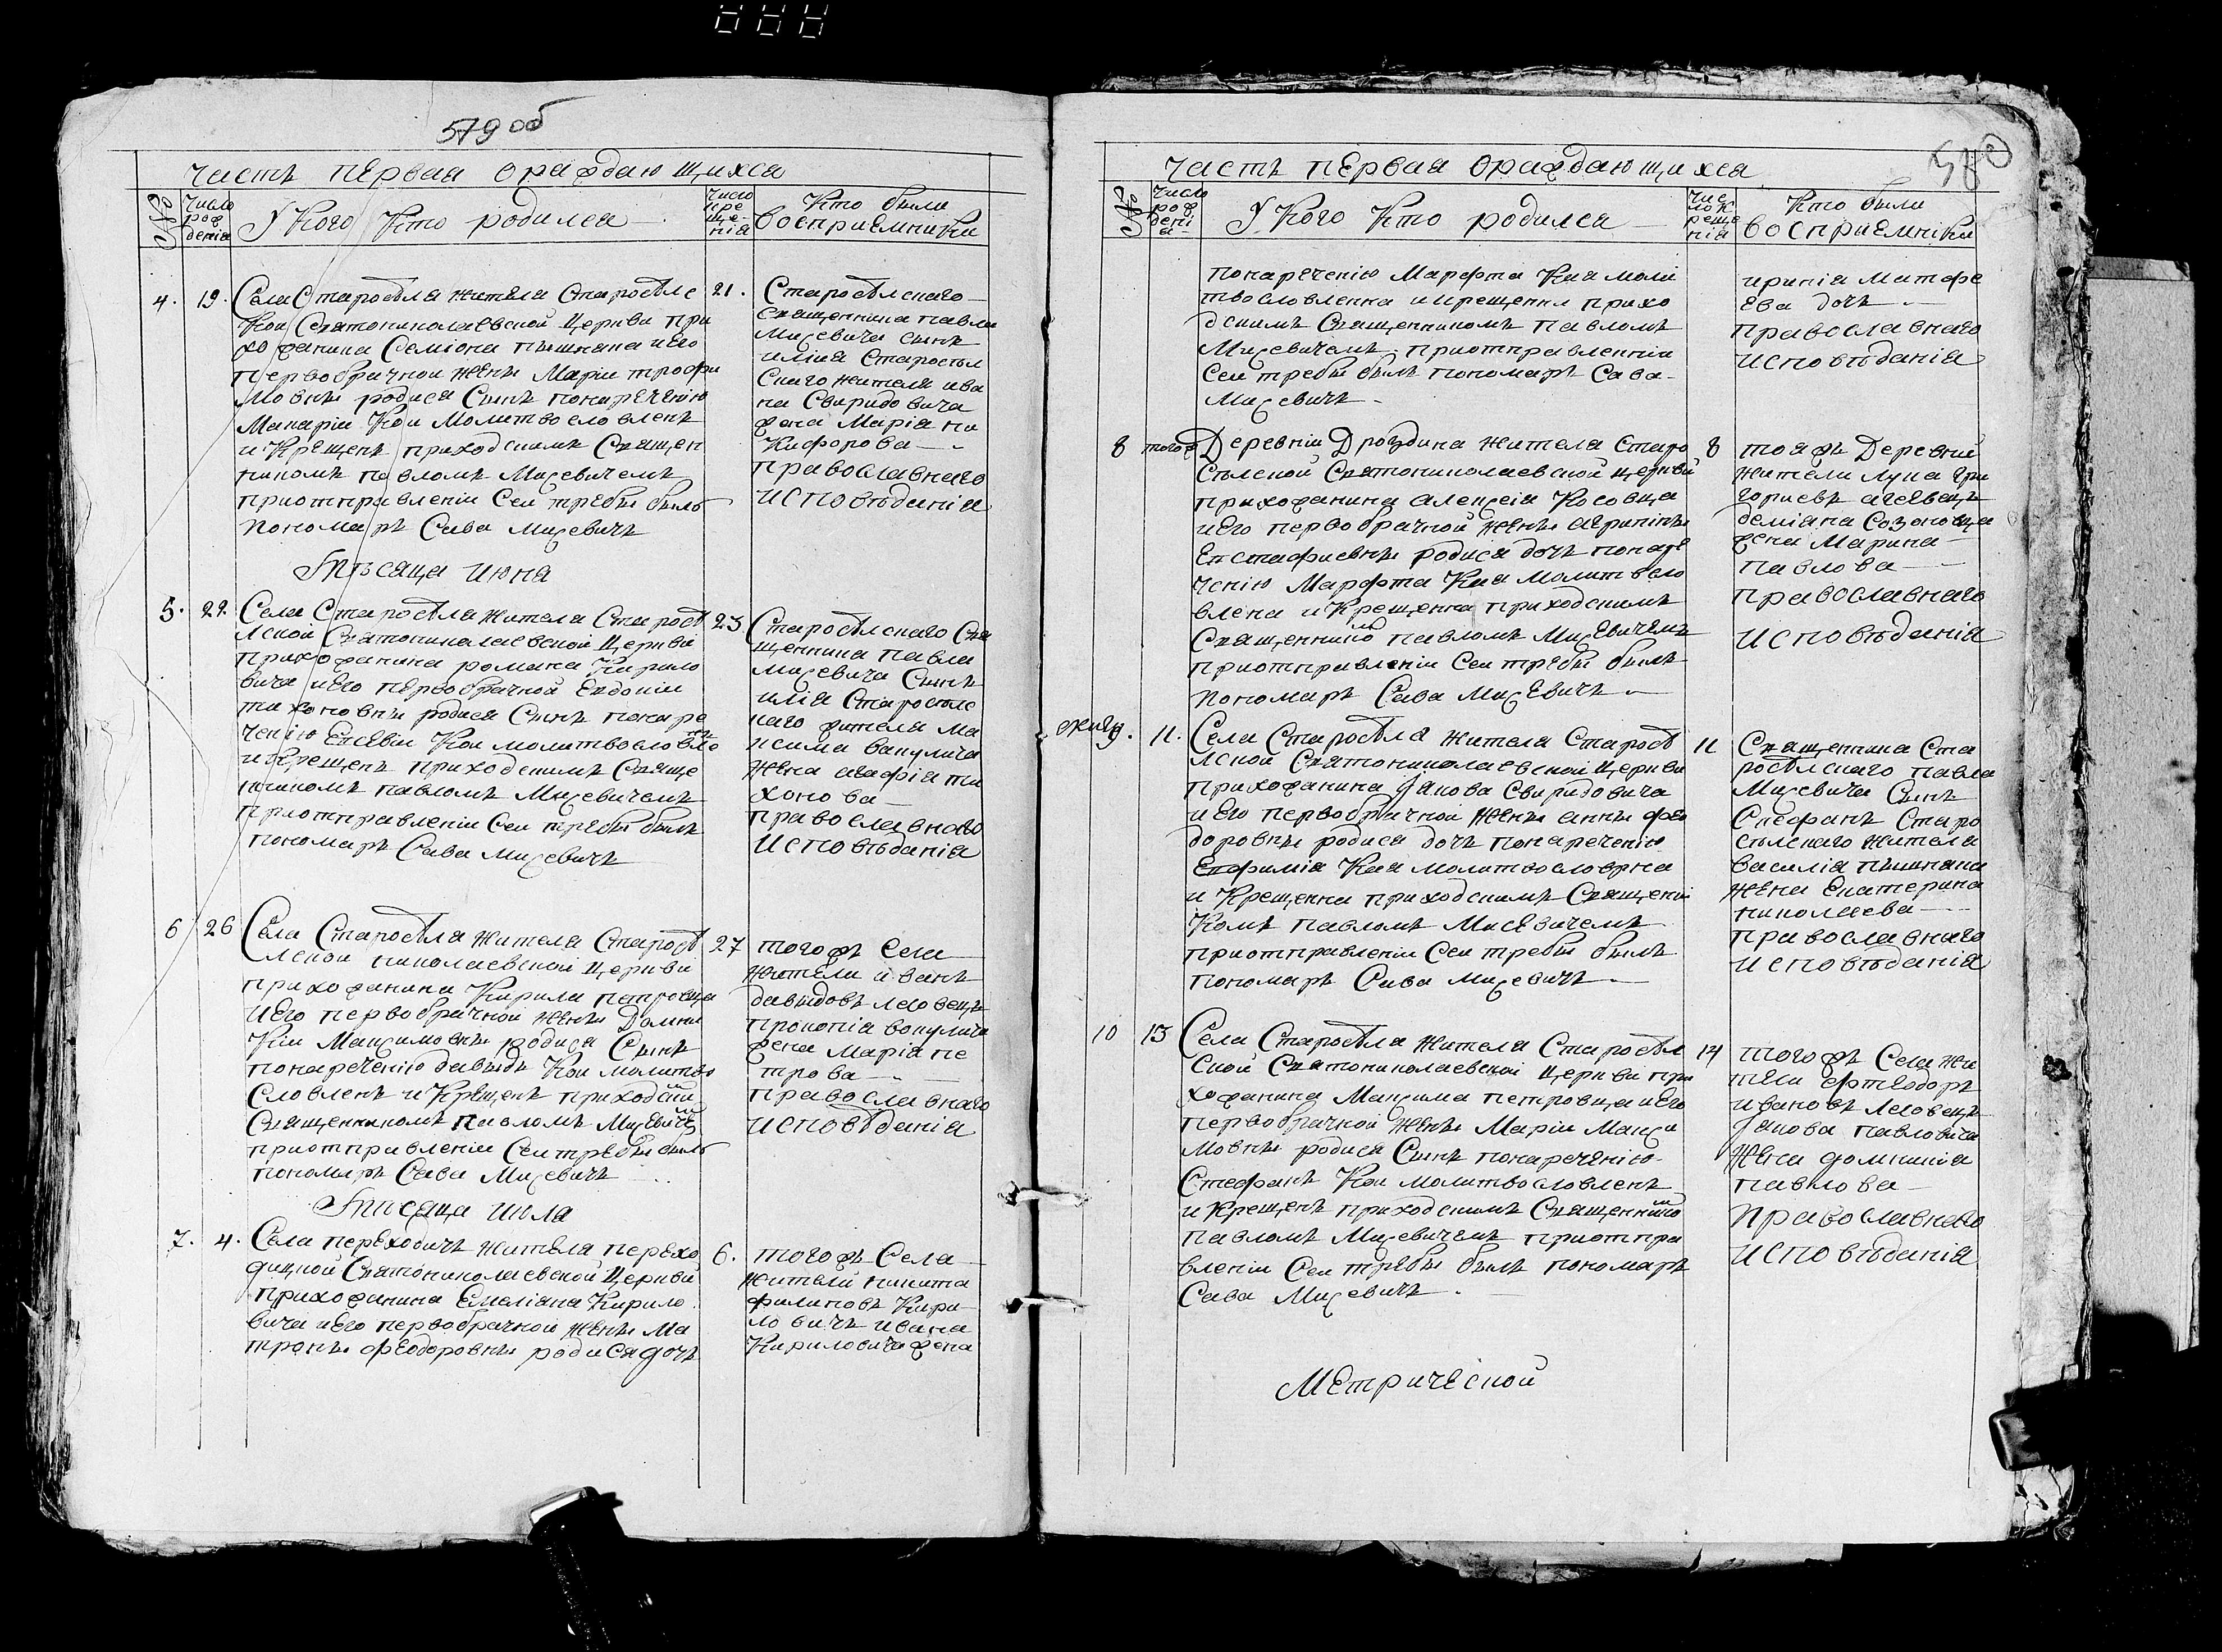 579 об
часть первая ораждающихся
№
Число рождения
У Кого Кто родился
Число креще-ния
Кто были восприемники
4. 19.
Села Староселя жителя Староселс
кои Святониколаевской Церкви при
хожанина Семиона пышняка иего
первобрачнои жены Марии трофи
мовны родися Сынъ понаречению
Макарии Кои Молитвословленъ
и Крещенъ приходскимъ Священ
никомъ павломъ Мисевичемъ
приотправлении Сеи требы былъ
пономаръ Сава Мисевичъ
21.
Староселскаго
Священника павла
Мисевича сынъ
илия Старосел
скаго жителя ива
на Свиридовича
жена Мариа ни
кифорова
православнаго
исповѣдания
Мѣсяца июня
5. 22
Села Староселя жителя Старосе
лской Святониколаевской Церкви
прихожанина романа Кирило
вича иего первобрачной Евдокии
тихоновны родися Сынъ понаре
чению Евсевии Кои молитвословле
и Крещенъ приходскимъ Свяще
нникомъ павломъ Мисевичемъ
приотправлении Сеи требы былъ
пономаръ Сава Мисевичъ
23
Староселскаго Свя
щенника павла
мисевича Сынъ
илиа Староселс
каго жителя Ма
ксима вакулича
жена агафиа ти
хонова
православнаго
Исповѣдания
6 26
Села Староселя жителя Старосе
лской николаевской Церкви
прихожанина Кирила петровца
иего первобрачной жены Домни
кии Максимовны родися Сынъ
понаречению давыдъ Кои молитво
словленъ и Крещенъ приходским
Священникомъ павломъ Мисевичем
приотправлении Сеи требы былъ
пономаръ Сава Мисевичъ
27
тогожъ Села
жители иванъ
давыдовъ леговецъ
прокопиа вакулича
жена мариа пе
трова
православнаго
исповѣдания
Мѣсяца июля
7. 4.
Села переходичъ жителя перехо
дицкой Святониколаевской Церкви
прихожанина Емелиана Кирило
вича иего первобрачной жены Ма
троны феодоровны родися дочь
6.
тогожъ Села
жители никита
филиповъ Кири
ловичъ ивана
Кириловича жена
580
часть первая ораждающихся
№
Число рождения
У Кого Кто родился
Число крещения
Кто были восприемники
понаречению Марфта Кая моли
твословленна и крещенна прихо
дскимъ Священникомъ павломъ
Мисевичемъ приотправлении
Сеи требы былъ пономаръ Сава
Мисевичъ
ириниа Матфе
ева дочъ
православнаго
исповѣдания
8 тогож
Деревни Дроздина жителя Старо
селской Святониколаевской церкви
прихожанина алексеиа Косовца
иего первобрачной жены агрипины
Евстафиевны родися дочъ понаре
чению Марфта Кая Молитвосло
влена и Крещенна приходскимъ
Священником павломъ Мисевичемъ
приотправлении Сеи требы былъ
пономаръ Сава Мисевичъ
8
тояжъ Деревни
жители Лука Гри
гориевъ
демиана Созоновца
жена Марина
павлова
православнаго
исповѣдания
9. 11.
Села Староселя жителя Старосе
лской Святониколаевской Церкви
прихожанина Якова Свиридовича
и его первобрачной жены анны фео
доровны родися дочъ понаречению
Евфимиа Кая молитвословена
и Крещенна приходскимъ Священи
комъ павломъ Мисевичемъ
приотправлении Сеи требы былъ
пономаръ Сава Мисевичъ
11
Священника Ста
роселскаго павла
Мисевича Сынъ
Стефанъ Старо
селскаго жителя
василиа пышняка
жена Екатерина
николаева
православнаго
исповѣдания
10 13
Села Староселя жителя Старосел
ской Святониколаевской церкви при
хожанина Максима петровца иего
первобрачной жены Марии Макси
мовны родися Сынъ понаречению
Стефанъ Кои молитвословленъ
и Крещенъ приходскимъ Священником
павломъ Мисевичемъ приотпра
влении Сеи требы былъ пономаръ
Сава Мисевичъ
14
тогожъ Села жи
тели фтеодоръ
ивановъ леговецъ
Якова павловича
жена домникиа
павлова
Православнаго
исповѣдания
Метрической